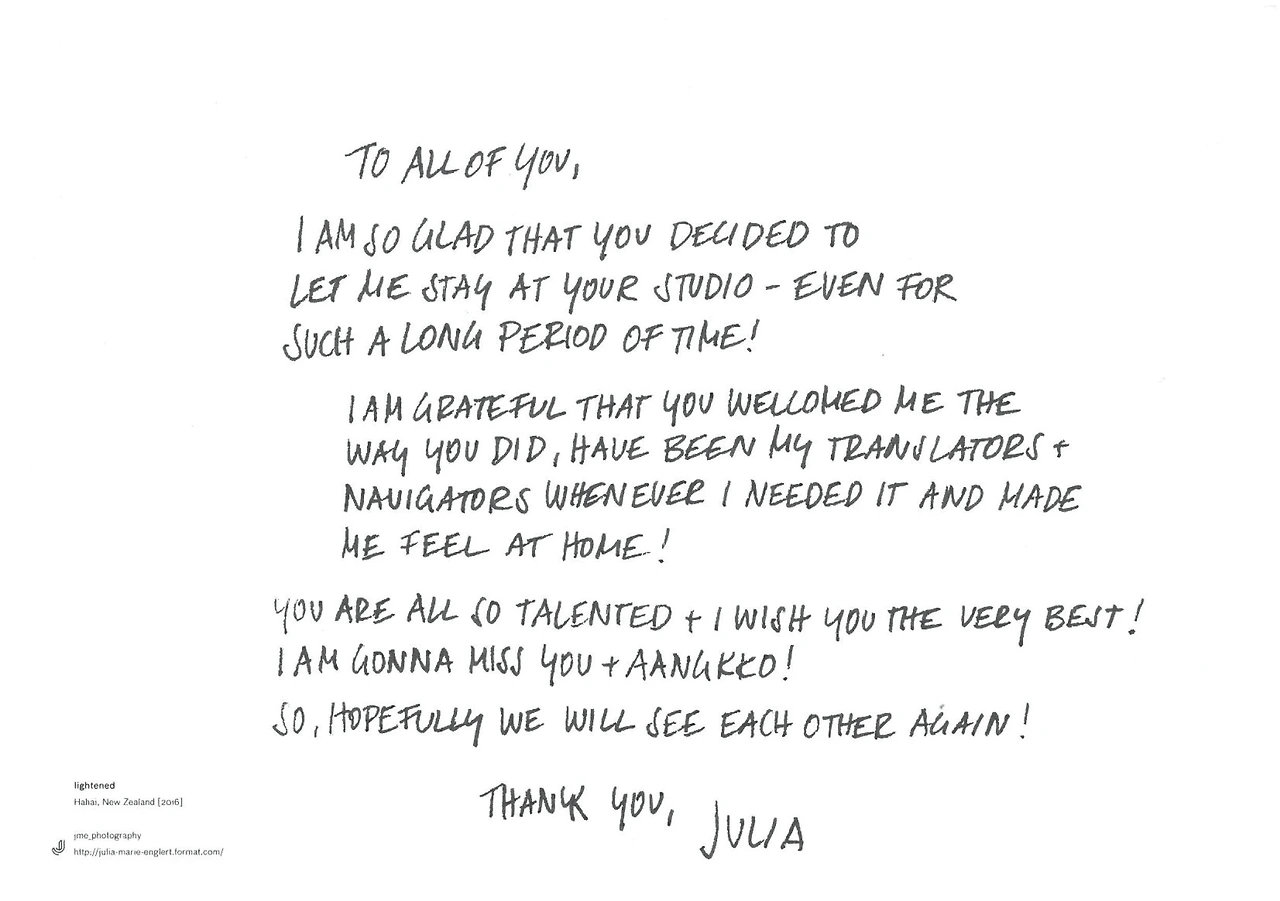 TO ALL OF YOU,
I AM SO GLAD THAT YOU DECIDED TO
LET ME STAY AT YOUR STUDIO – EVEN FOR
SUCH A LONG PERIOD OF TIME!
I AM GRATEFUL THAT YOU WELCOMED ME THE
WAY YOU DID, HAVE BEEN MY TRANSLATORS +
NAVIGATORS WHENEVER I NEEDED IT AND MADE
ME FEEL AT HOME!
YOU ARE ALL SO TALENTED + I WISH YOU THE VERY BEST!
I AM GONNA MISS YOU + AANGKKO!
SO, HOPEFULLY WE WILL SEE EACH OTHER AGAIN!
THANK YOU,
JULIA
lightened
Hahai, New Zealand [2016]
jme_photography
http://julia-marie-englert.format.com/